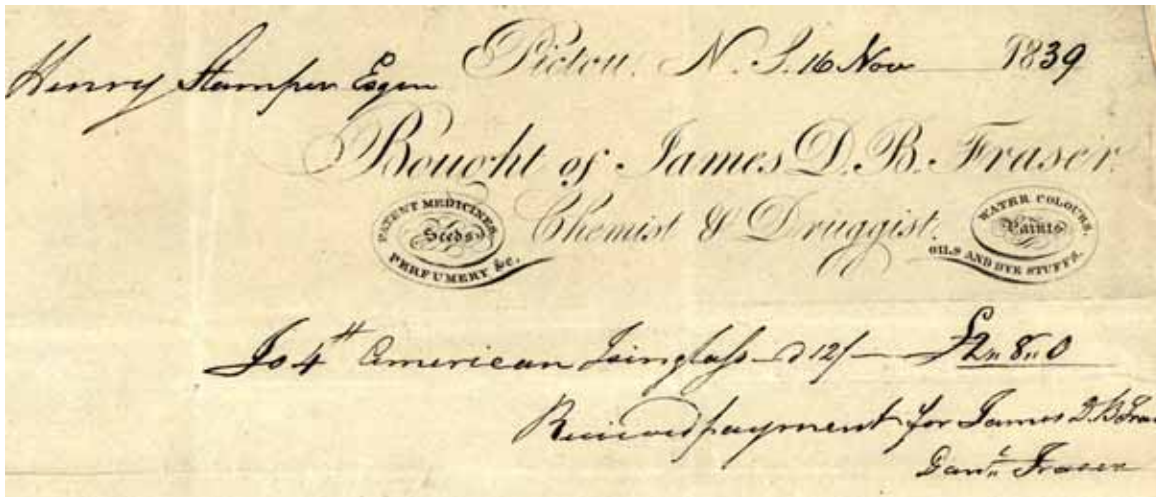 Pictou, N.S. 16 Nov 1839
Henry Stamper Esqr
Bought of James D. B. Fraser.
Chemist & Druggist.
PATENT MEDICINES,
Seeds
PERFUMERY &c.
WATER COLOURS,
Paints
OILS AND DYE STUFFS.
To 4 lb American Isinglass @ 12/ — £2 " 8 " 0
Received payment for James D. B. Fra
Fraser